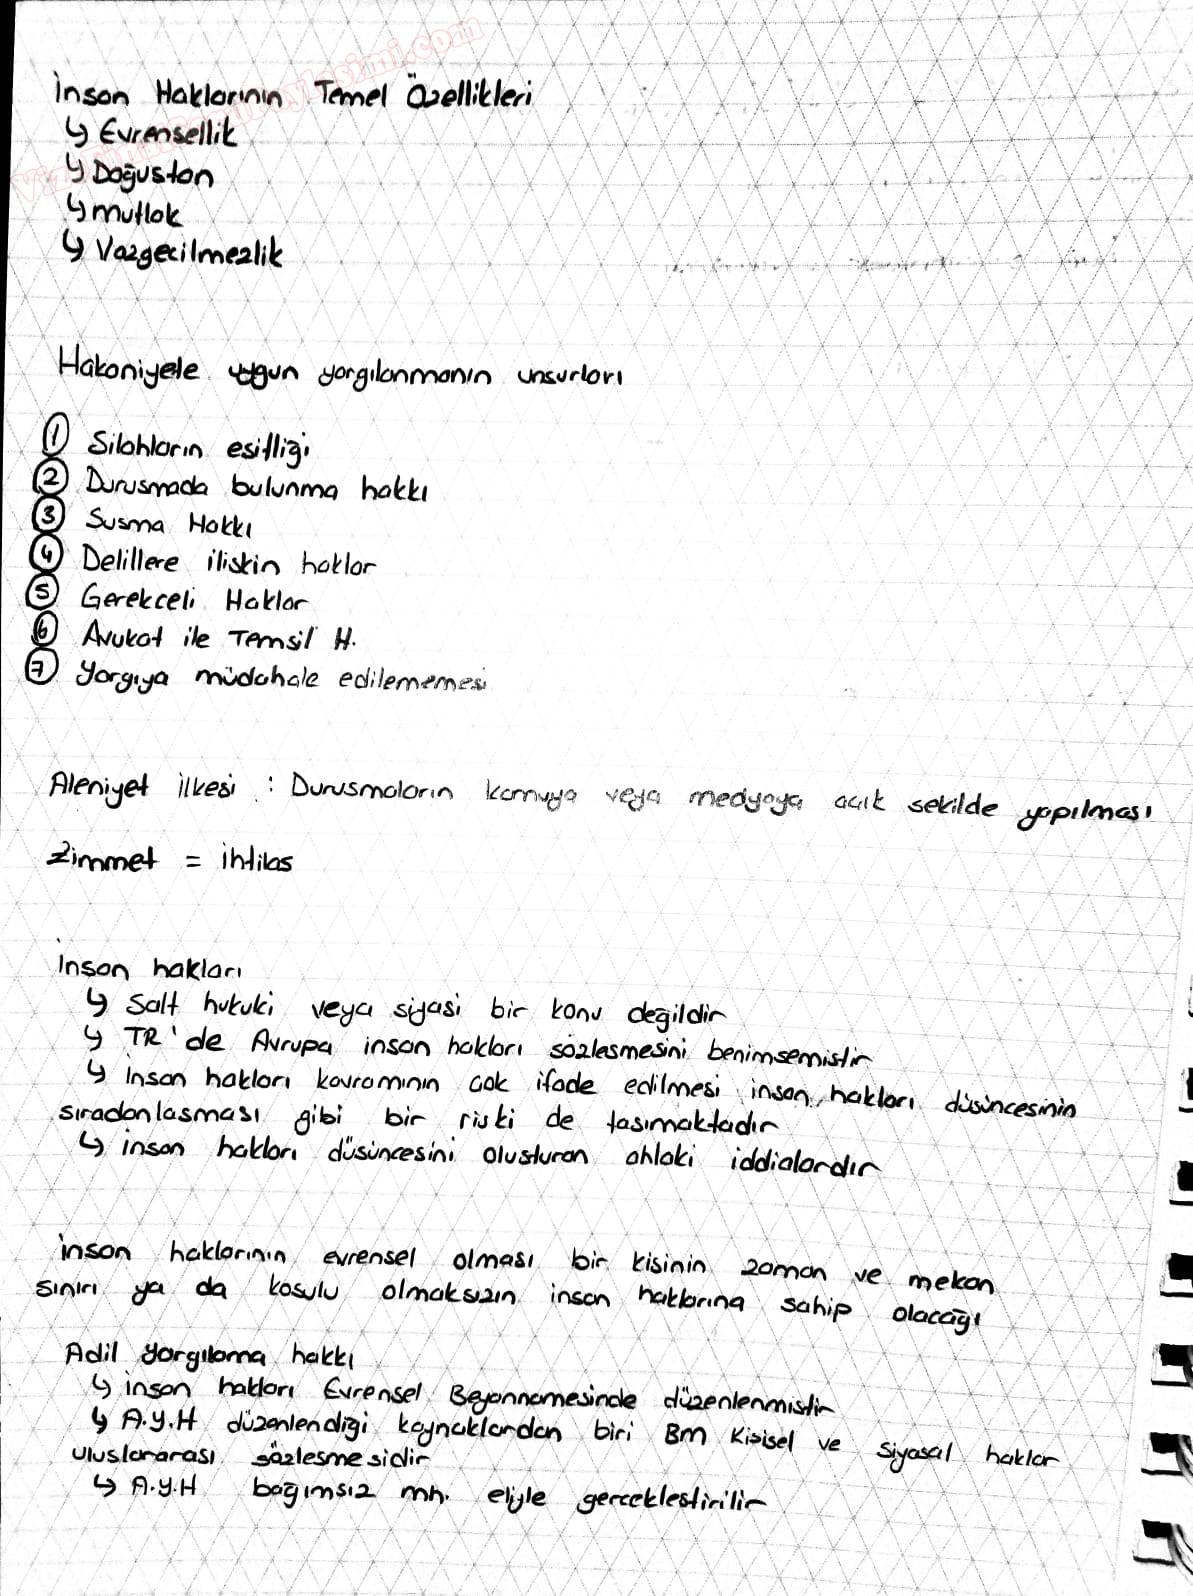 İnsan Haklarının Temel Özellikleri
↳ Evrensellik
↳ Doğustan
↳ mutlak
↳ Vazgecilmezlik
Hakaniyele uygun yargılanmanın unsurları
① Silahların esitliği
② Durusmada bulunma hakkı
③ Susma Hakkı
④ Delillere iliskin haklar
⑤ Gerekceli Haklar
⑥ Avukat ile Temsil H.
⑦ Yargıya müdahale edilememesi
Aleniyet ilkesi : Durusmaların kamuya veya medyaya acık sekilde yapılması
Zimmet = ihtilas
İnsan hakları
↳ Salt hukuki veya siyasi bir konu değildir
↳ TR'de Avrupa insan hakları sözlesmesini benimsemistir
↳ İnsan hakları kavramının cok ifade edilmesi insan hakları düsüncesinin
sıradanlasması gibi bir riski de tasımaktadır
↳ insan hakları düsüncesini olusturan ahlaki iddialardır
insan haklarının evrensel olması bir kisinin zaman ve mekan
sınırı ya da kosulu olmaksızın insan haklarına sahip olacağı
Adil yargılama hakkı
↳ insan hakları Evrensel Beyannamesinde düzenlenmistir
↳ A.Y.H düzenlendiği kaynaklardan biri Bm Kisisel ve siyasal haklar
uluslararası sözlesmesidir
↳ A.Y.H bağımsız mh. eliyle gerceklestirilir